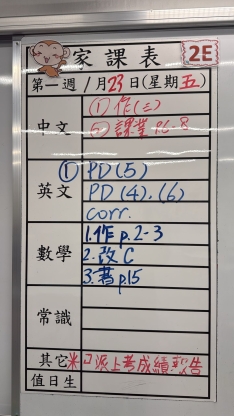 家課表 2E
第一週 1月23日(星期五)
中文
① 作(三)
② 課業 p.6-8
英文
① PD(5)
PD(4).(6)
corr.
數學
1.作 p.2-3
2.改C
3.書p.15
常識
其它 ※ 已派上考成績報告
值日生